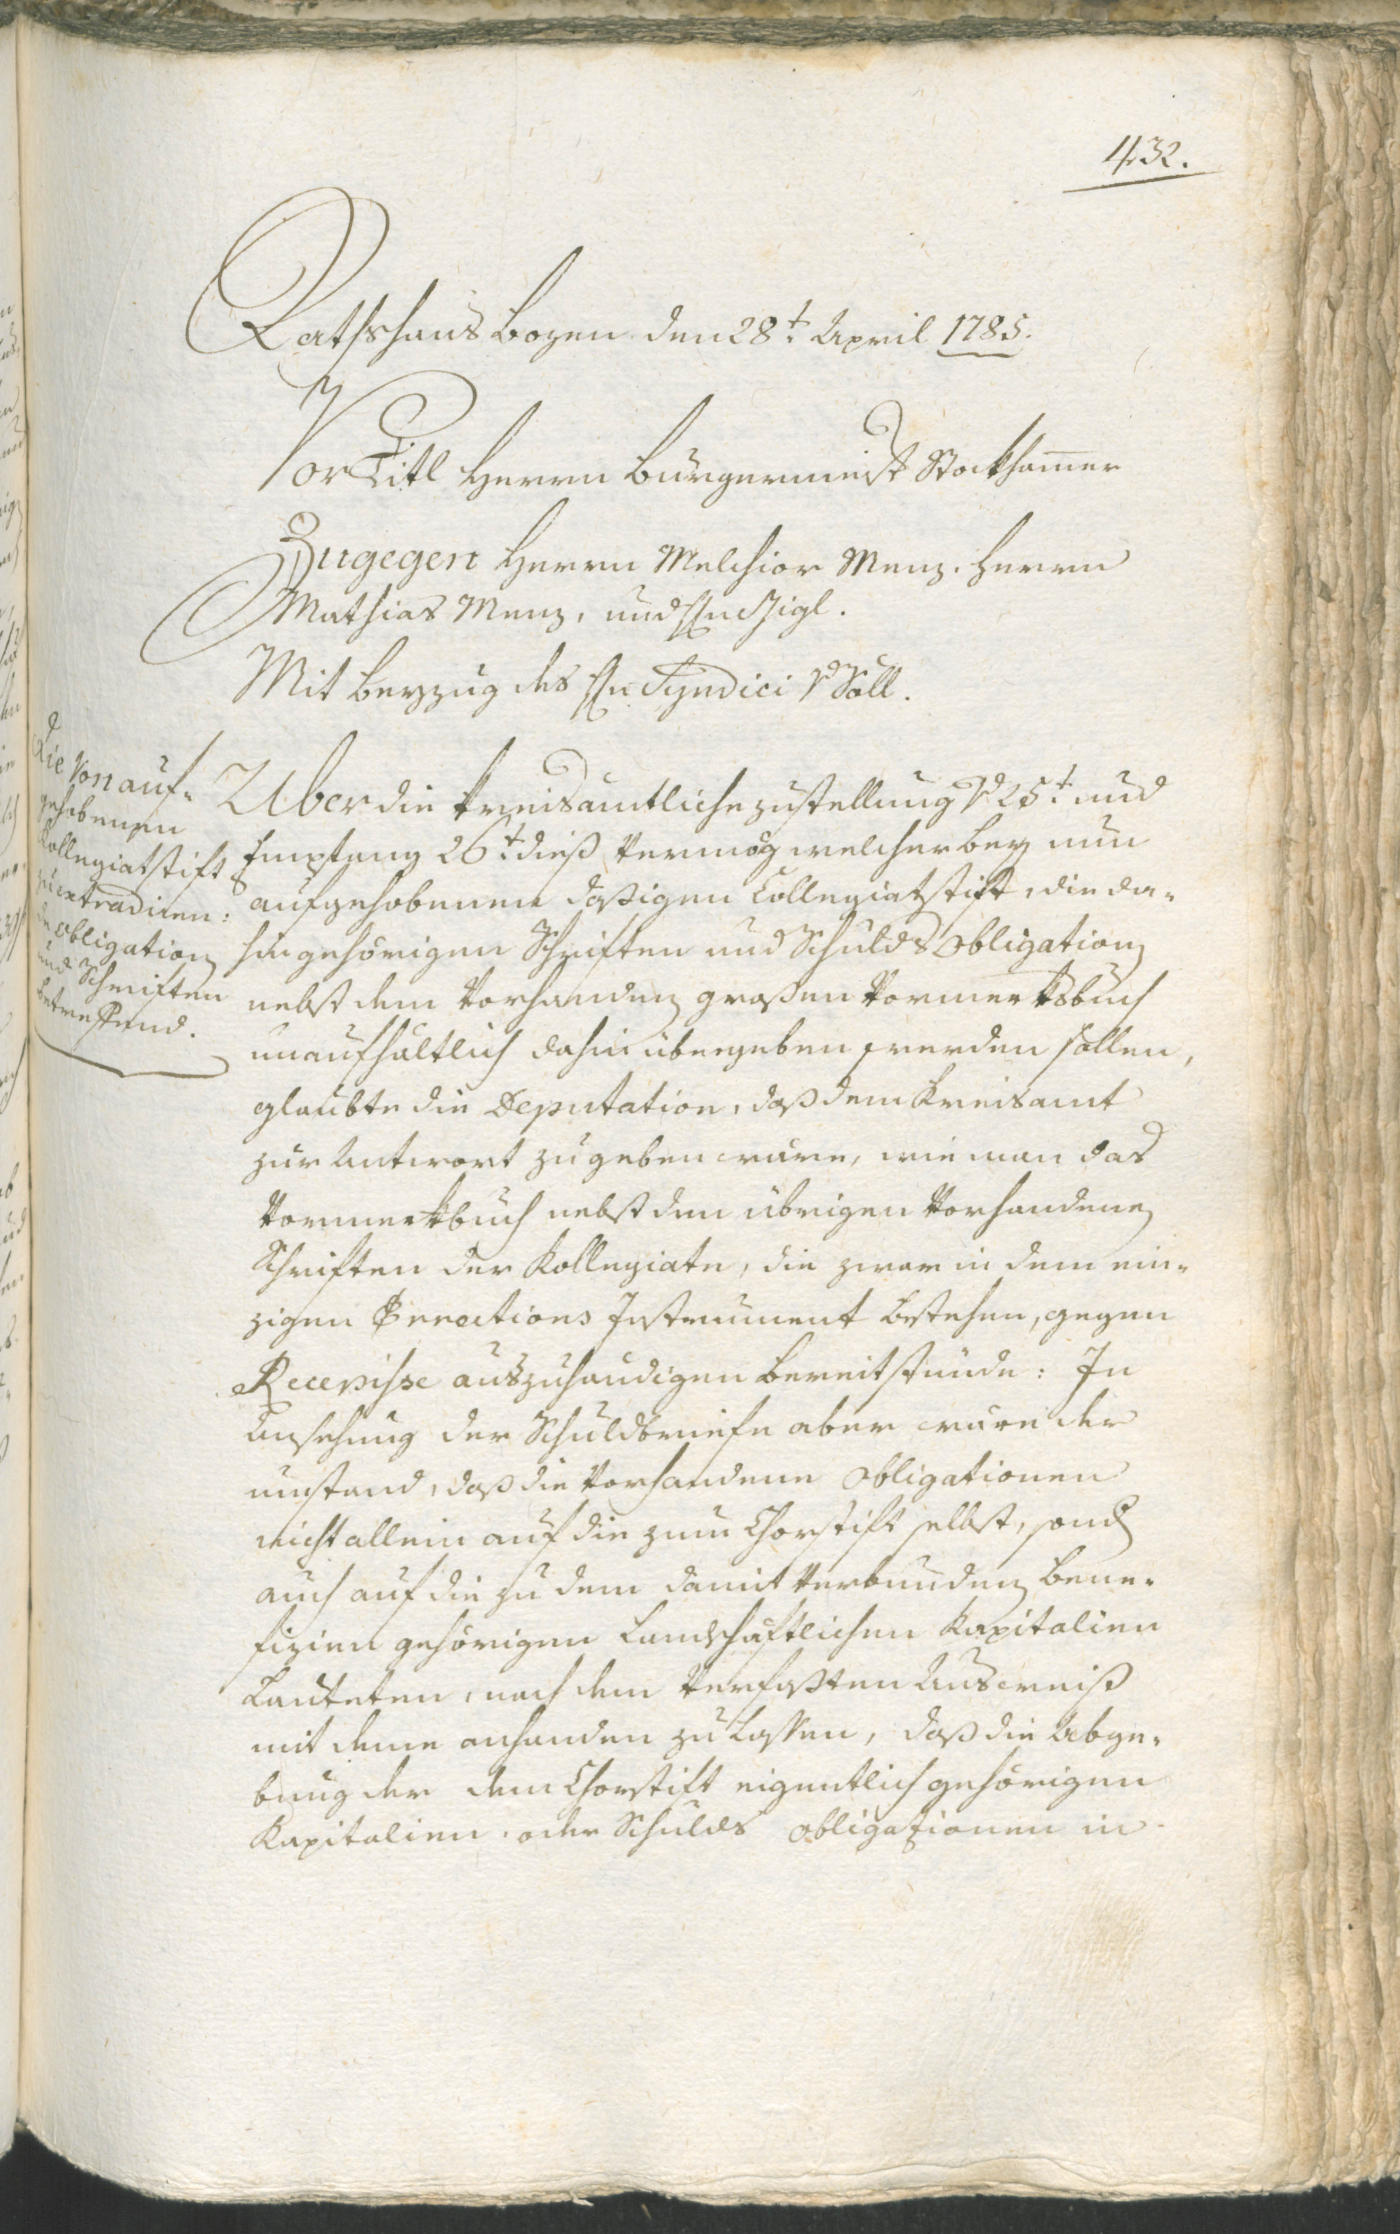 432.
Rathshaus Bozen den 28t. April 1785.
Vor Titl Herrn Burgermeist Stockhamer
Zugegen Herrn Melchior Menz. Herrn
Mathias Menz, und Hn Gigl.
Mit beyzug des Hn Syndici v Söll.
Die Von auf-
gehobenen
Kollegiatstift
zu extradiren:
de obligation
und Schriften
betreffend.
Uber die kreisamtliche zustellung vd 25t. und
Empfang 26t. dieß vermög welcher bey nun
aufgehobenem daßigen Collegiatstift, die da-
hin gehörigen Schriften und Schulds obligation
nebst dem vorhanden großen Vormerksbuch
unaufhältlich dahin übergeben werden sollen,
glaubte die Deputation, daß dem Kreisamt
zur Antwort zu geben wäre, wie man das
Vormerkbuch nebst den übrigen vorhandenen
Schriften der Kollegiate, die zwar in dem ein-
zigen Errections Instrument bestehen, gegen
Recepisse auszuhändigen bereit stünde: In
Ansehung der Schuldbriefe aber wäre der
umstand, daß die vorhandene obligationen
nicht allein auf die zum Chorstift selbst, sond
auch auf die zu dem damit verbunden Bene-
fizien gehörigen Landschäftlichen Kapitalien
Lauteten, nach dem verfaßten Ausweiß
mit deme anhanden zu Lassen, daß die Abge-
bung der dem Chorstift eigentlich gehörigen
Kapitalien, oder Schulds obligationen in